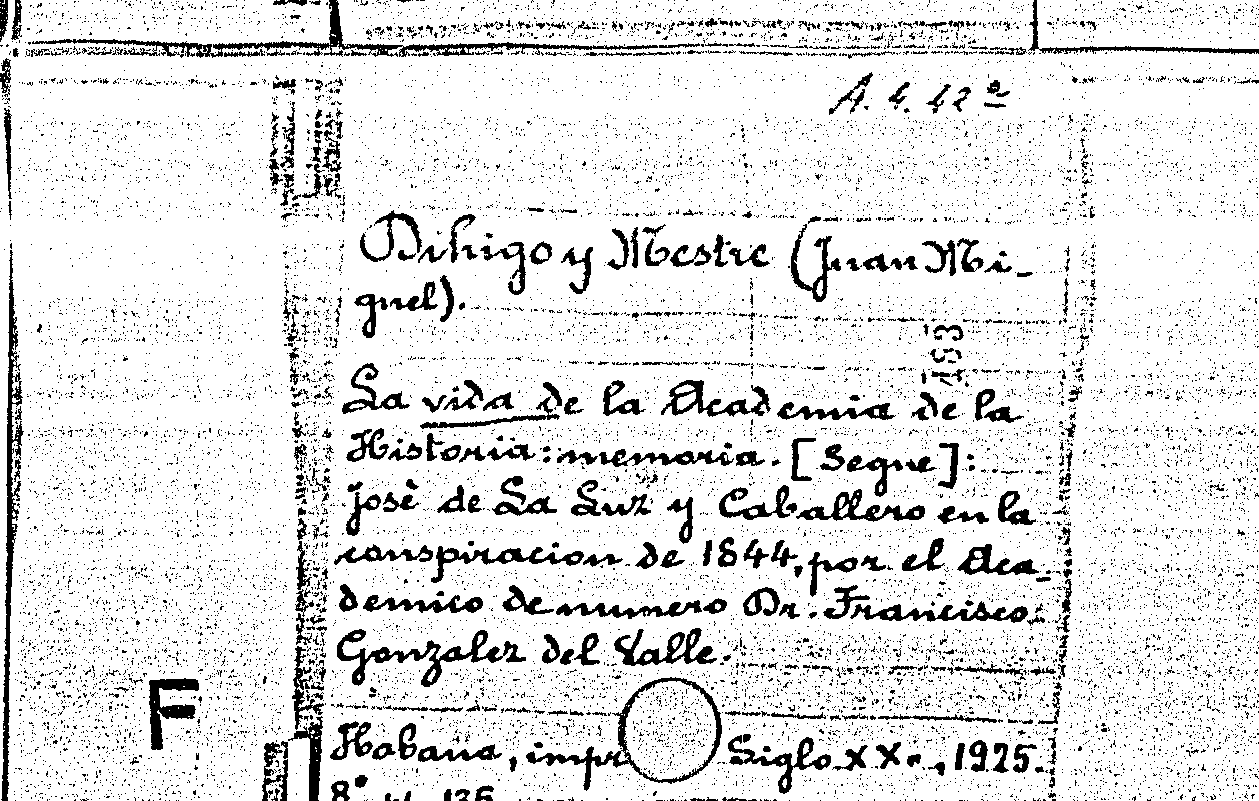 A. 4. 42ª
Dihigo y Mestre (Juan Mi-
guel).
183
La vida de la Academia de la
Historia: memoria. [Segue]:
Josè de La Luz y Caballero en la
conspiracion de 1844, por el Aca-
demico de numero Dr. Francisco
Gonzalez del Valle.
F
Habana, impr Siglo XX., 1925.
8°
135